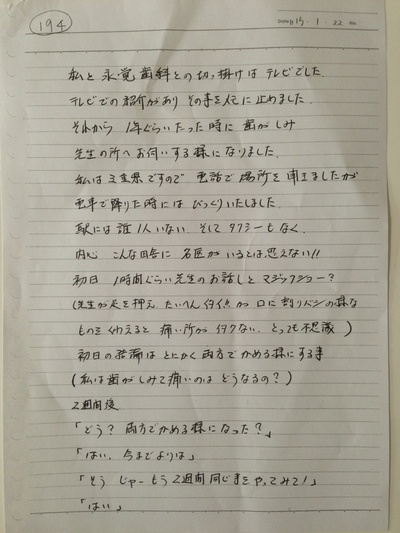 194
15. 1 22
私と永覚歯科との切っ掛けはテレビでした.
テレビでの紹介があり その事を心に止めました.
それから 1年ぐらいたった時に 歯がしみ
先生の所へお伺いする様になりました.
私は三重県ですので 電話で場所を聞きましたが
電車で降りた時には びっくりいたしました.
駅には誰1人いない そして タクシーもなく.
内心 こんな田舎に 名医がいるとは思えない!!
初日 1時間ぐらい先生のお話しと マジックショー?
(先生が足を押え たいへん 何点か 口に割りバシの様な
ものをくわえると 痛い所が 何ケない. とっても不思議)
初日の結論は とにかく両方でかめる様にする事
(私は歯がしみて痛いのは どうなるの?)
2週間後
「どう? 両方でかめる様になった?」
「はい. 今までよりは」
「そう じゃーもう2週間同じ事をやってみて!」
「はい」